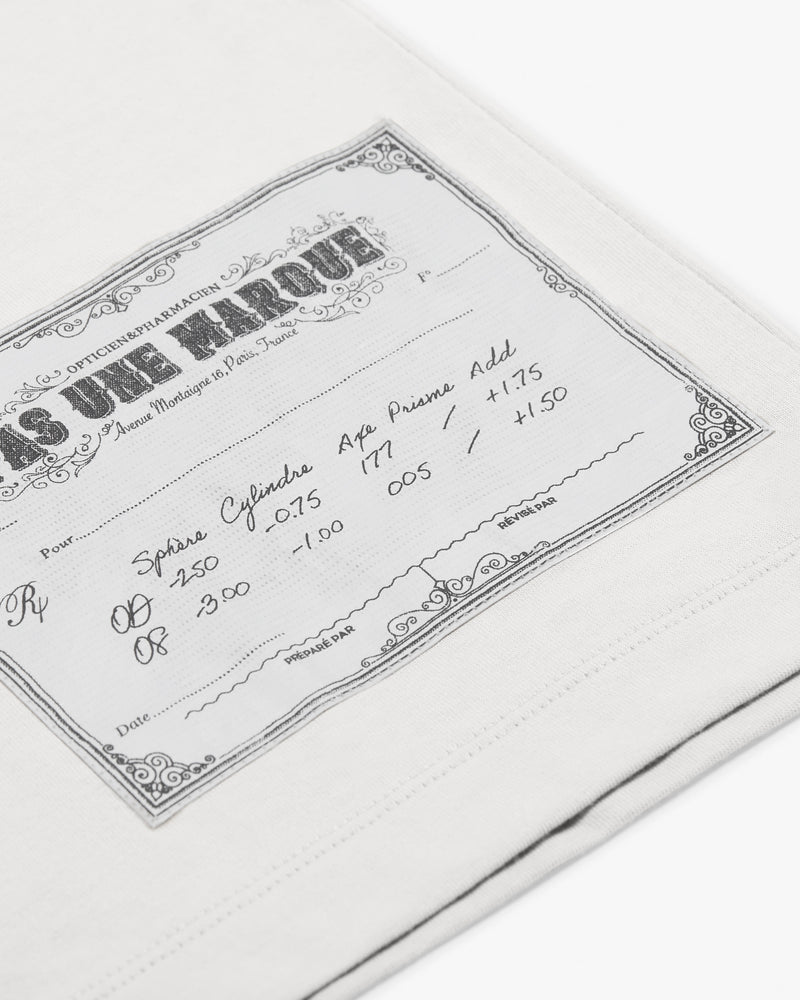 OPTICIEN&PHARMACIEN
PAS UNE MARQUE
Avenue Montaigne 16, Paris, France
F°
Pour
Sphère Cylindre Axe Prisme Add
Rx
OD -250 -0.75 177 / +1.75
OS -3.00 -1.00 005 / +1.50
Date
PRÉPARÉ PAR
RÉVISÉ PAR